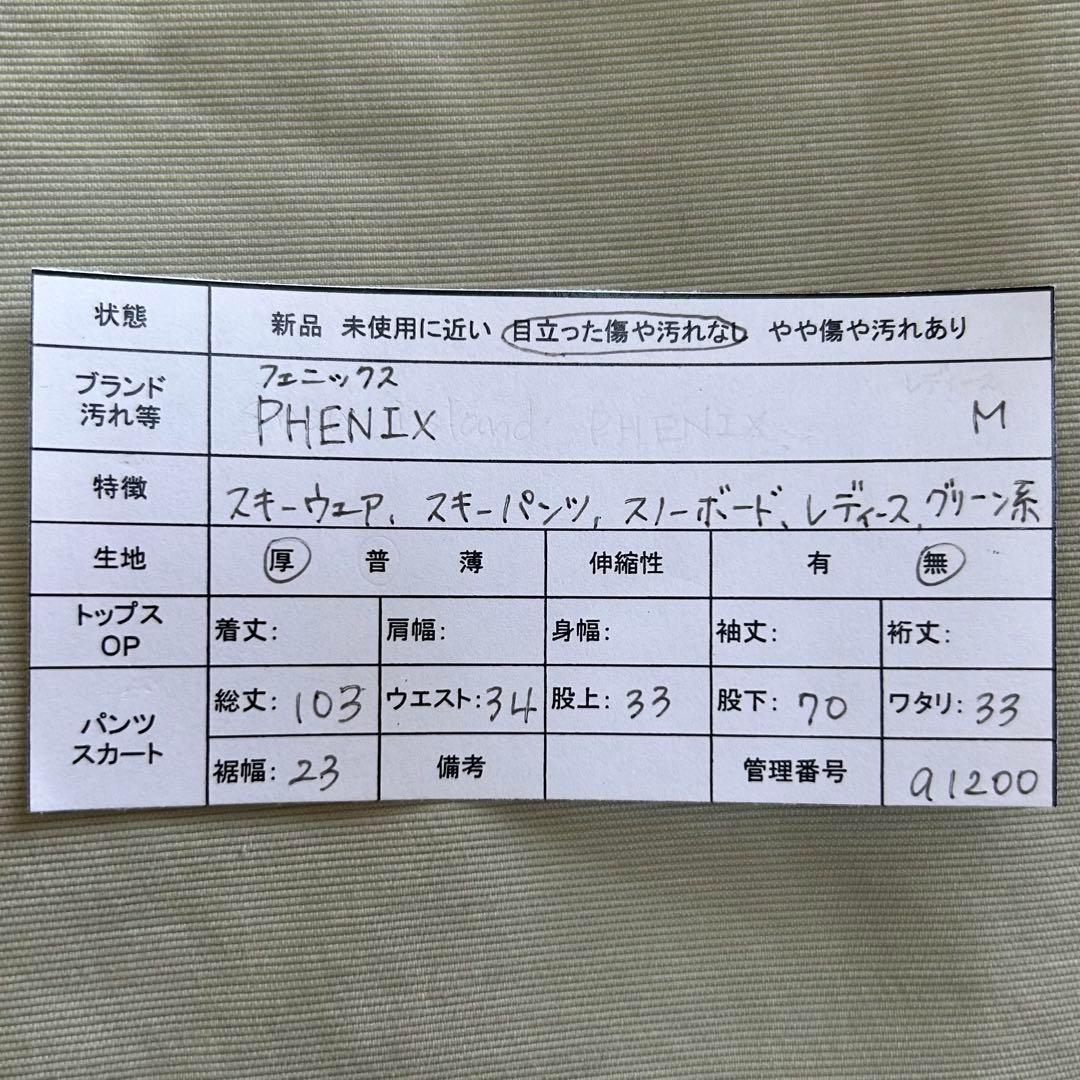 状態 新品 未使用に近い 目立った傷や汚れなし やや傷や汚れあり
ブランド 汚れ等 フェニックス
PHENIX M
特徴 スキーウェア、スキーパンツ、スノーボード、レディース、グリーン系
生地 厚 普 薄 伸縮性 有 無
トップス OP 着丈: 肩幅: 身幅: 袖丈: 裄丈:
パンツ スカート 総丈: 103 ウエスト: 34 股上: 33 股下: 70 ワタリ: 33
裾幅: 23 備考 管理番号 a1200